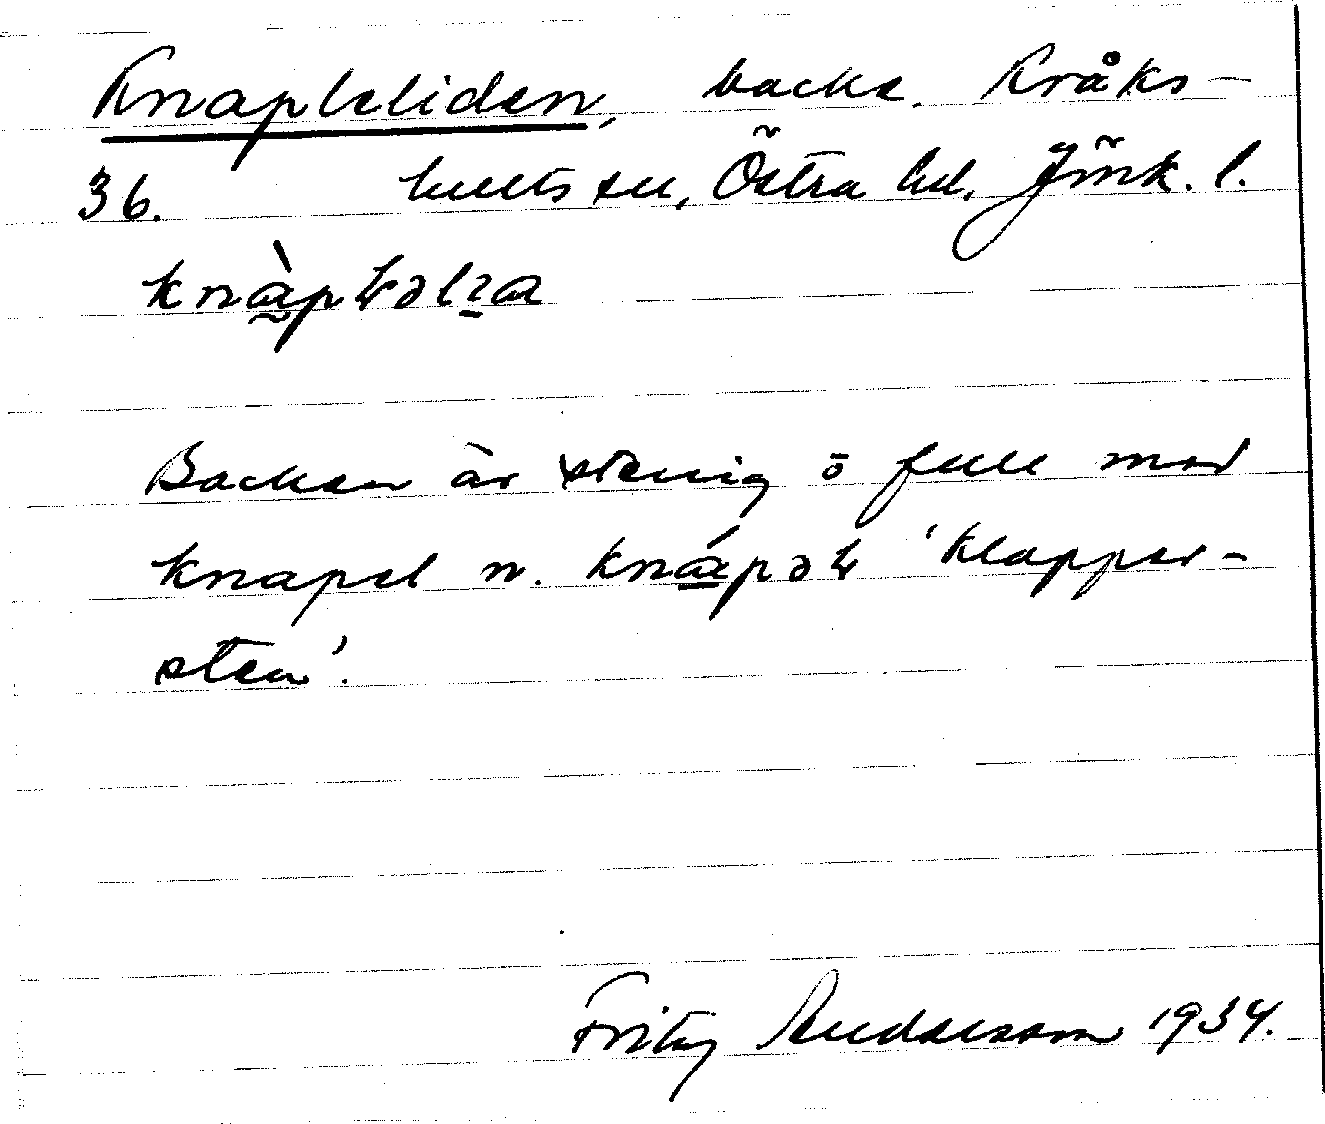 Knapleliden, backe. Kråks-
36. hults sn, Östra hd. Jönk. l.
knàpləlıa
Backen är stenig o full med
knapel n. knápəl 'klapper-
sten'.
Fritz Andersson 1934.